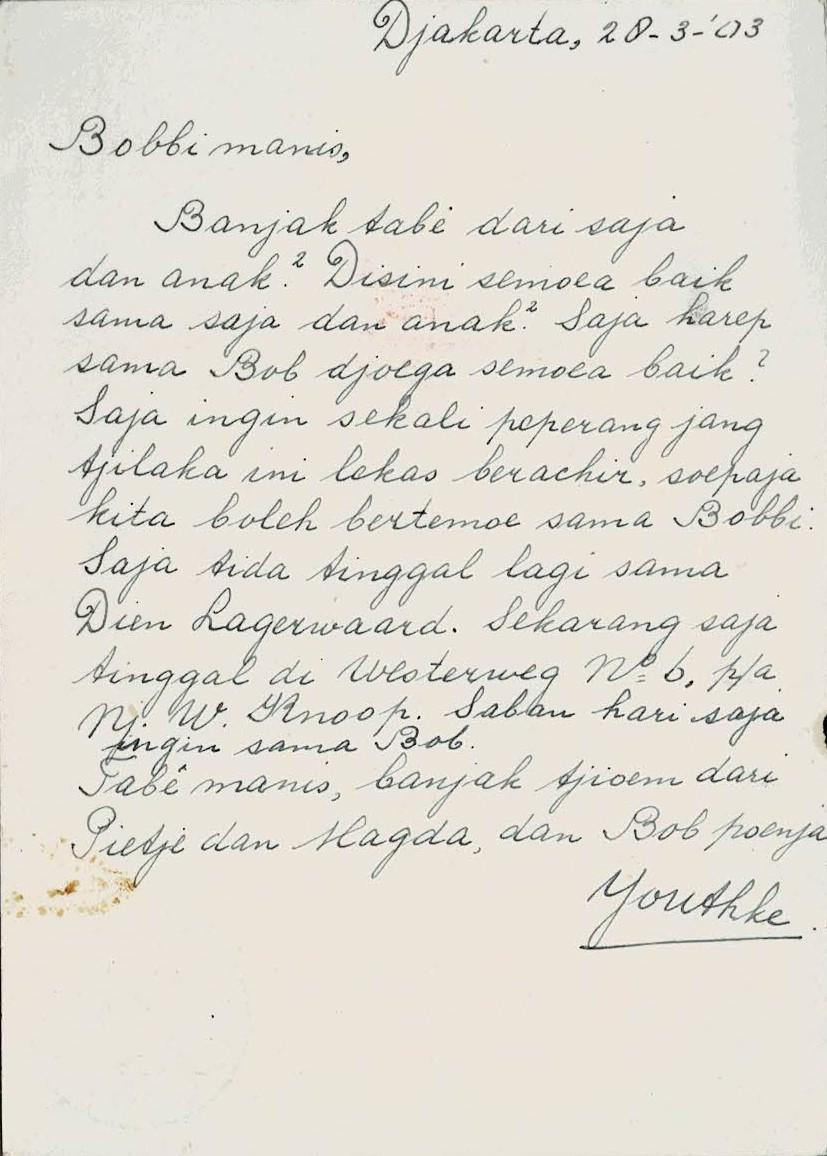 Djakarta, 28-3-'03
Bobbi manis,
Banjak tabé dari saja
dan anak². Disini semoea baik
sama saja dan anak². Saja harep
sama Bob djoega semoea baik²?
Saja ingin sekali peperang jang
tjilaka ini lekas berachir, soepaja
kita boleh bertemoe sama Bobbi.
Saja tida tinggal lagi sama
Dien Lagerwaard. Sekarang saja
tinggal di Westerweg Nº 6, p/a
Nj. W. Knoop. Saban hari saja
ingin sama Bob.
Tabé manis, banjak tjioem dari
Pietje dan Magda, dan Bob poenja
Youthke.